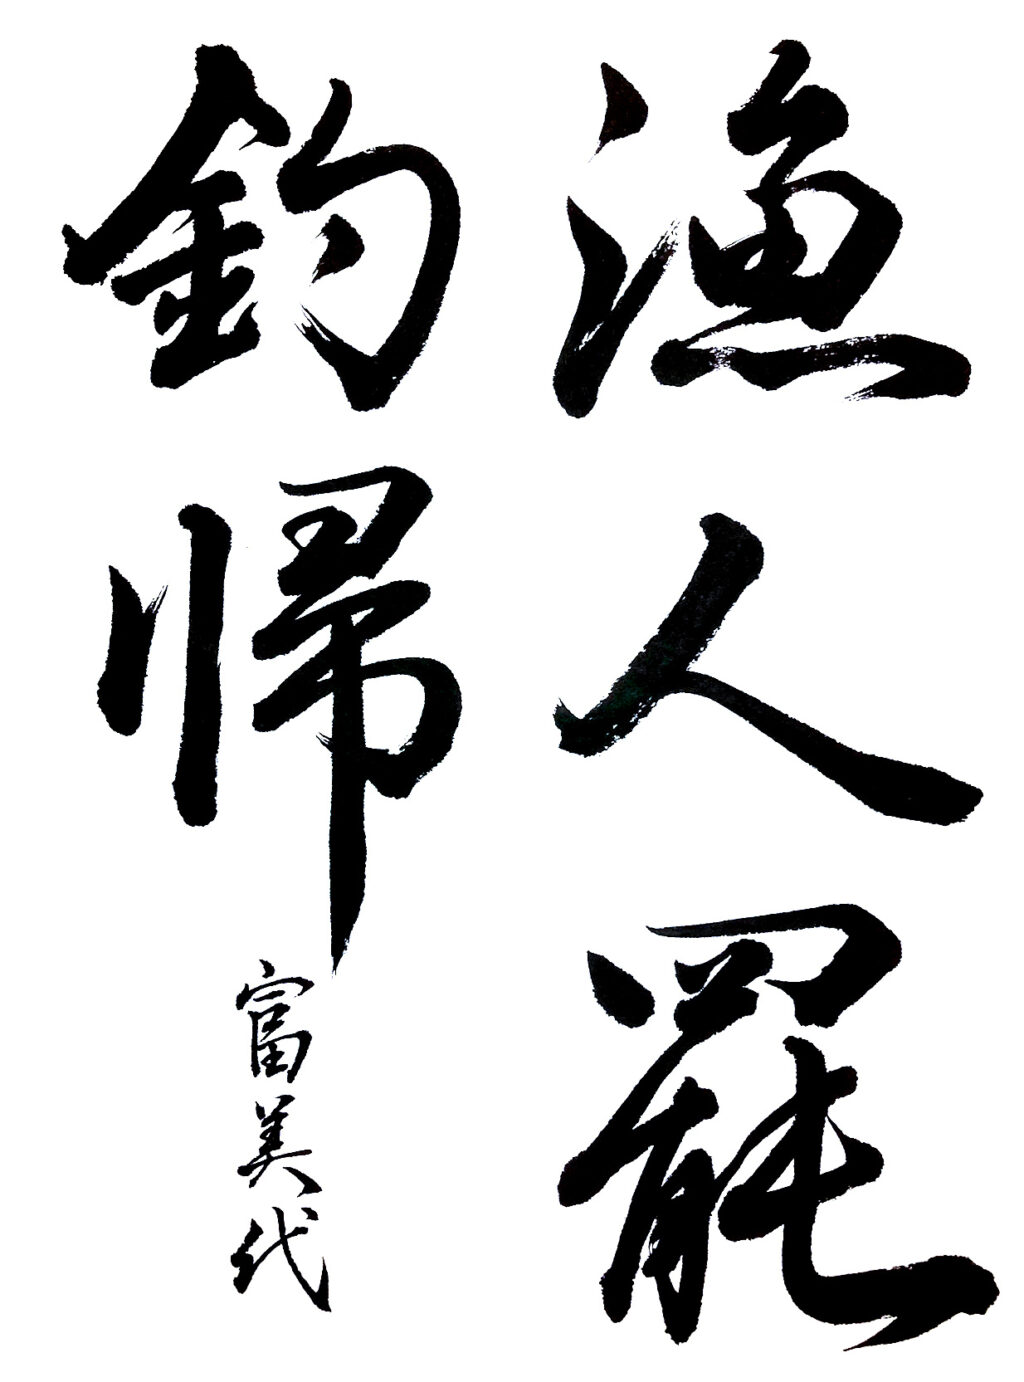 漁人罷
釣帰
富美代